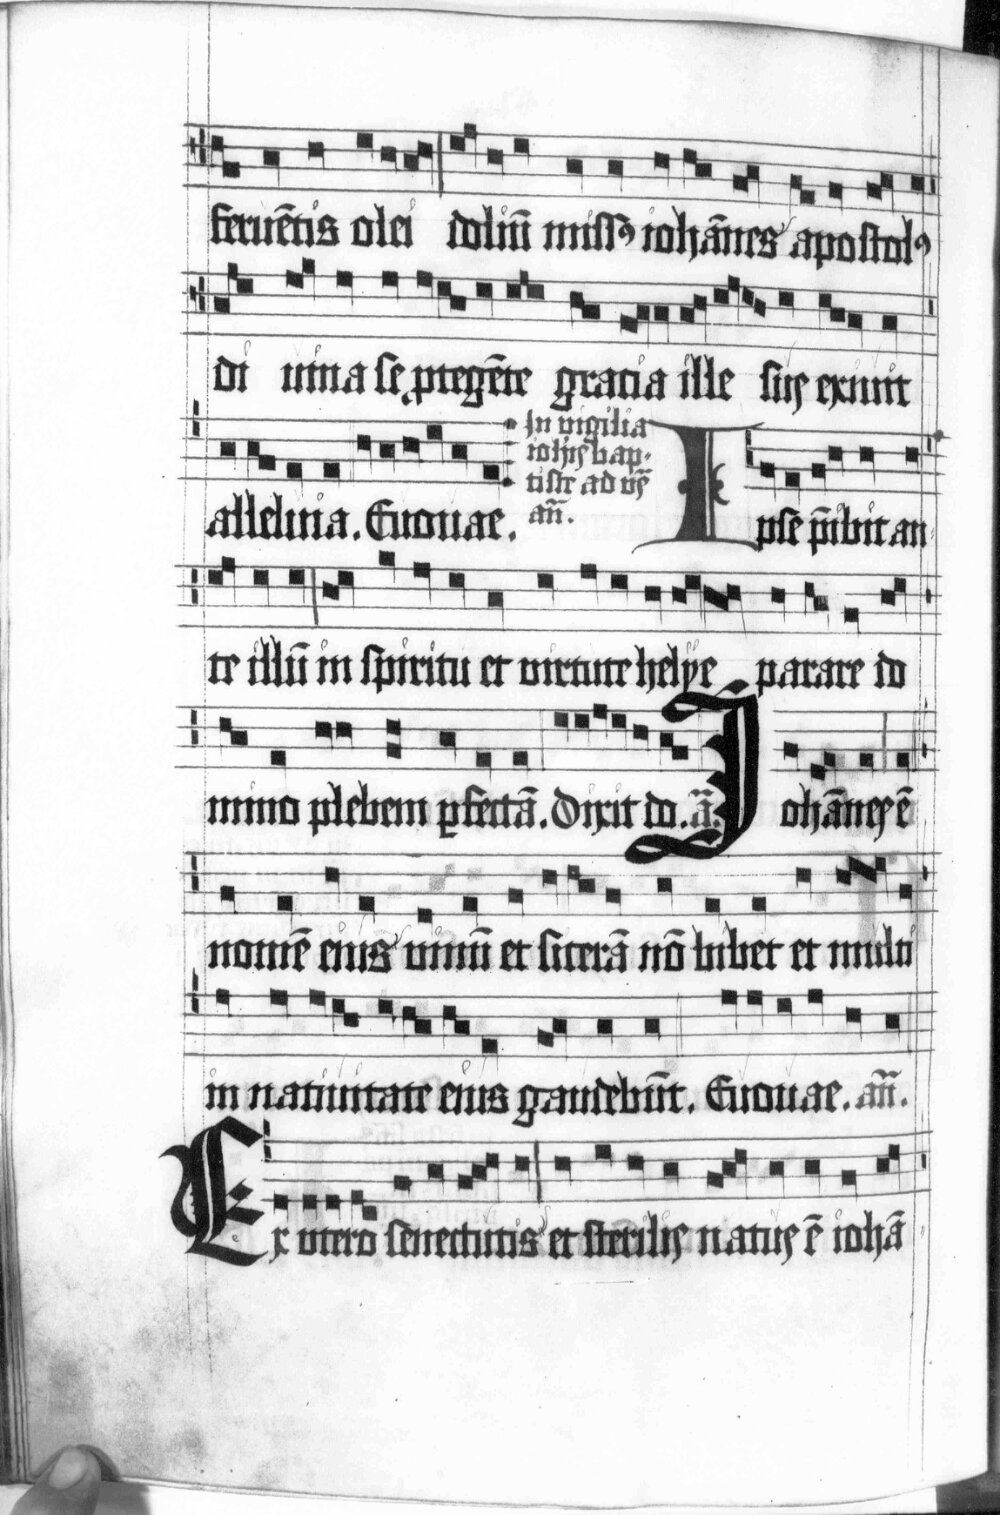 feruētis olei doliū missꝰ iohānes apostolꝰ
di uina se ꝓtegēte gracia ille sus exiuit
alleluia. Euouae.
In vigilia
iohis bap-
tiste ad vs̄
an̄.
Ipse p̄ibit an
te illū in spiritu et virtute helye parare do
mino plebem ꝑfectā. Dixit do. ā.
Johānes ē
nomē eius vinū et sicerā nō bibet et multi
in natiuitate eius gaudebūt. Euouae. an̄.
Ex utero senectutis et sterilis natus ē iohā